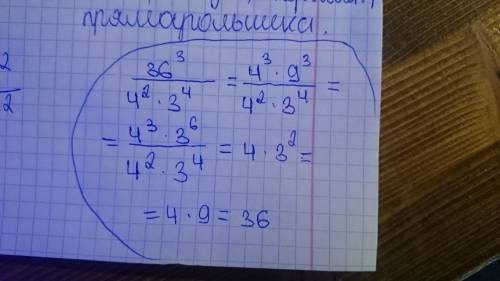 прямоугольника.
2
2
36³ / 4² · 3⁴ = 4³ · 9³ / 4² · 3⁴ =
= 4³ · 3⁶ / 4² · 3⁴ = 4 · 3² =
= 4 · 9 = 36